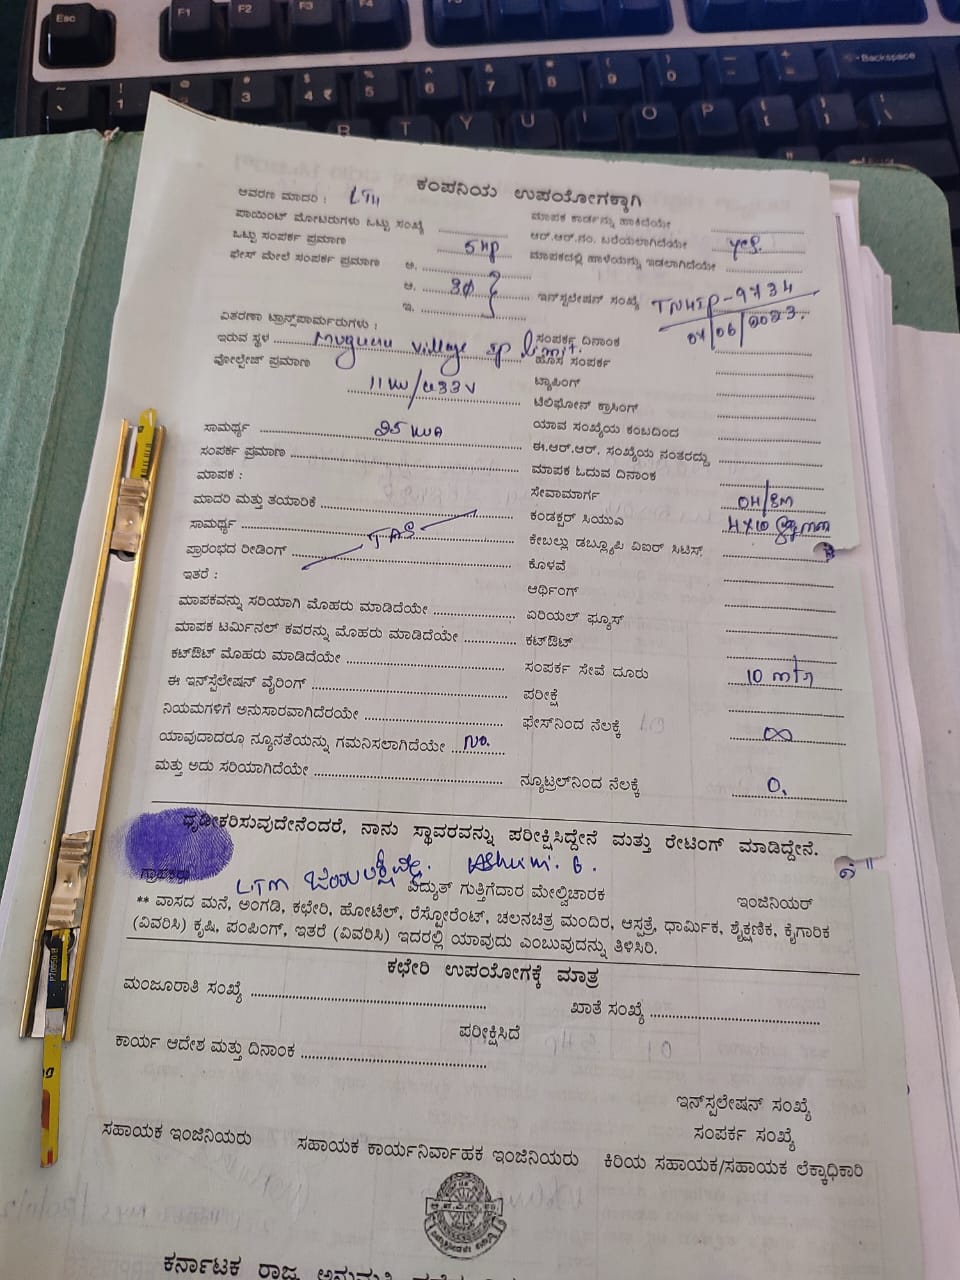 Esc F1 F2 F3 F4
Backspace
R T Y U I O P
ಕಂಪನಿಯ ಉಪಯೋಗಕ್ಕಾಗಿ
ಆವರಣ ಮಾದರಿ : LTH
ಮಾಪಕ ಕಾರ್ಡನ್ನು ಹಾಕಿದೆಯೇ
ಪಾಯಿಂಟ್ ಮೋಟರುಗಳು ಒಟ್ಟು ಸಂಖ್ಯೆ
ಆರ್.ಆರ್.ನಂ. ಬರೆಯಲಾಗಿದೆಯೇ yes.
ಒಟ್ಟು ಸಂಪರ್ಕ ಪ್ರಮಾಣ 5HP
ಮಾಪಕದಲ್ಲಿ ಹಾಳೆಯನ್ನು ಇಡಲಾಗಿದೆಯೇ
ಫೇಸ್ ಮೇಲೆ ಸಂಪರ್ಕ ಪ್ರಮಾಣ ಅ.
ಆ. 3Ø ಇನ್‌ಸ್ಟಲೇಷನ್ ಸಂಖ್ಯೆ TNHIP-9734
ಇ. 04/06/2023.
ವಿತರಣಾ ಟ್ರಾನ್ಸ್‌ಫಾರ್ಮರುಗಳು :
ಇರುವ ಸ್ಥಳ Muguru village sp limit.
ಸಂಪರ್ಕ ದಿನಾಂಕ
ವೋಲ್ಟೇಜ್ ಪ್ರಮಾಣ
ಹೊಸ ಸಂಪರ್ಕ
11KV/433V ಟ್ಯಾಪಿಂಗ್
ಟೆಲಿಫೋನ್ ಕ್ರಾಸಿಂಗ್
ಸಾಮರ್ಥ್ಯ 25 KVA ಯಾವ ಸಂಖ್ಯೆಯ ಕಂಬದಿಂದ
ಸಂಪರ್ಕ ಪ್ರಮಾಣ ಈ.ಆರ್.ಆರ್. ಸಂಖ್ಯೆಯ ನಂತರದ್ದು
ಮಾಪಕ : ಮಾಪಕ ಓದುವ ದಿನಾಂಕ
ಮಾದರಿ ಮತ್ತು ತಯಾರಿಕೆ ಸೇವಾಮಾರ್ಗ OH/SM
ಸಾಮರ್ಥ್ಯ TAS ಕಂಡಕ್ಟರ್ ಸಿಯುವಿ 4X10 Sqmm
ಪ್ರಾರಂಭದ ರೀಡಿಂಗ್ ಕೇಬಲ್ಲು ಡಬ್ಲ್ಯೂಪಿ ವಿಐರ್ ಸಿಟಿಸ್
ಇತರೆ : ಕೊಳವೆ
ಆರ್ಥಿಂಗ್
ಮಾಪಕವನ್ನು ಸರಿಯಾಗಿ ಮೊಹರು ಮಾಡಿದೆಯೇ ಏರಿಯಲ್ ಫ್ಯೂಸ್
ಮಾಪಕ ಟರ್ಮಿನಲ್ ಕವರನ್ನು ಮೊಹರು ಮಾಡಿದೆಯೇ ಕಟ್‌ಔಟ್
ಕಟ್‌ಔಟ್ ಮೊಹರು ಮಾಡಿದೆಯೇ ಸಂಪರ್ಕ ಸೇವೆ ದೂರು 10 mtr
ಈ ಇನ್‌ಸ್ಪೆಲೇಷನ್ ವೈರಿಂಗ್ ಪರೀಕ್ಷೆ
ನಿಯಮಗಳಿಗೆ ಅನುಸಾರವಾಗಿದೆರಯೇ ಫೇಸ್‌ನಿಂದ ನೆಲಕ್ಕೆ ∞
ಯಾವುದಾದರೂ ನ್ಯೂನತೆಯನ್ನು ಗಮನಿಸಲಾಗಿದೆಯೇ No.
ಮತ್ತು ಅದು ಸರಿಯಾಗಿದೆಯೇ ನ್ಯೂಟ್ರಲ್‌ನಿಂದ ನೆಲಕ್ಕೆ 0.
ಧೃಡೀಕರಿಸುವುದೇನೆಂದರೆ, ನಾನು ಸ್ಥಾವರವನ್ನು ಪರೀಕ್ಷಿಸಿದ್ದೇನೆ ಮತ್ತು ರೇಟಿಂಗ್ ಮಾಡಿದ್ದೇನೆ.
ಗ್ರಾಹಕರು LTM ವಿದ್ಯುತ್ ಗುತ್ತಿಗೆದಾರ ಮೇಲ್ವಿಚಾರಕ ಇಂಜಿನಿಯರ್
** ವಾಸದ ಮನೆ, ಅಂಗಡಿ, ಕಛೇರಿ, ಹೋಟೆಲ್, ರೆಸ್ಟೋರೆಂಟ್, ಚಲನಚಿತ್ರ ಮಂದಿರ, ಆಸ್ಪತ್ರೆ, ಧಾರ್ಮಿಕ, ಶೈಕ್ಷಣಿಕ, ಕೈಗಾರಿಕ
(ವಿವರಿಸಿ) ಕೃಷಿ, ಪಂಪಿಂಗ್, ಇತರೆ (ವಿವರಿಸಿ) ಇದರಲ್ಲಿ ಯಾವುದು ಎಂಬುವುದನ್ನು ತಿಳಿಸಿರಿ.
ಕಛೇರಿ ಉಪಯೋಗಕ್ಕೆ ಮಾತ್ರ
ಮಂಜೂರಾತಿ ಸಂಖ್ಯೆ ಖಾತೆ ಸಂಖ್ಯೆ
ಪರೀಕ್ಷಿಸಿದೆ
ಕಾರ್ಯ ಆದೇಶ ಮತ್ತು ದಿನಾಂಕ
ಇನ್‌ಸ್ಪಲೇಷನ್ ಸಂಖ್ಯೆ
ಸಂಪರ್ಕ ಸಂಖ್ಯೆ
ಸಹಾಯಕ ಇಂಜಿನಿಯರು ಸಹಾಯಕ ಕಾರ್ಯನಿರ್ವಾಹಕ ಇಂಜಿನಿಯರು ಕಿರಿಯ ಸಹಾಯಕ/ಸಹಾಯಕ ಲೆಕ್ಕಾಧಿಕಾರಿ
ಕರ್ನಾಟಕ ರಾಜ್ಯ ಅನುಮತಿ